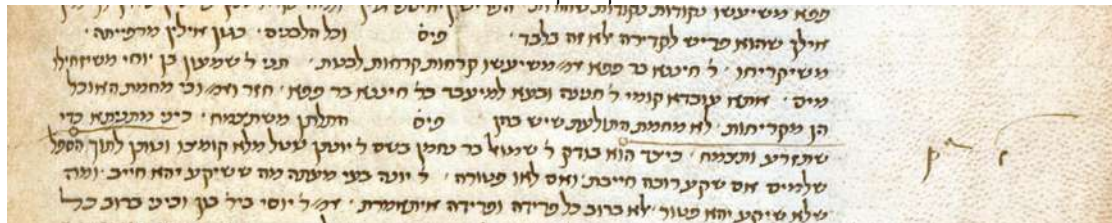 פפא משיעשו נקודות נקודות שחורות
אילך שהוא פריש לקדירה לא זה בלבד · פיס׳ וכל הלבנים · כגון אילין מרפייתה ·
משיקריחו · ר׳ חיננא בר פפא אמ׳ משיעשו קרחות קרחות לבנות · תני ר׳ שמעון בן יוחי משיזחילו
מים · אתא עובדא קומי ר׳ חנינה ובעא למיעבד כר׳ חיננא בר פפא · חזר ואמ׳ וכי מחמת האוכל
הן מקריחות לא מחמת התולעת שיש בהן פיס׳ התלתן משתצמח · כיני מתניתא כדי
שתזרע ותצמח · כיצד הוא בודק ר׳ שמואל בר נחמן בשם ר׳ יונתן נוטל מלא קומצו ונותן לתוך הספל
שלמים אם שקע רובה חייבת ואם לאו פטורה · ר׳ יונה בעי מעתה מה ששיקע יהא חייב · ומה
שלא שיקע יהא פטור לא ברוב כל פרידה ופרידה איתאמרת · אמ׳ ר׳ יוסי ביר׳ בון וכיני ברוב כל